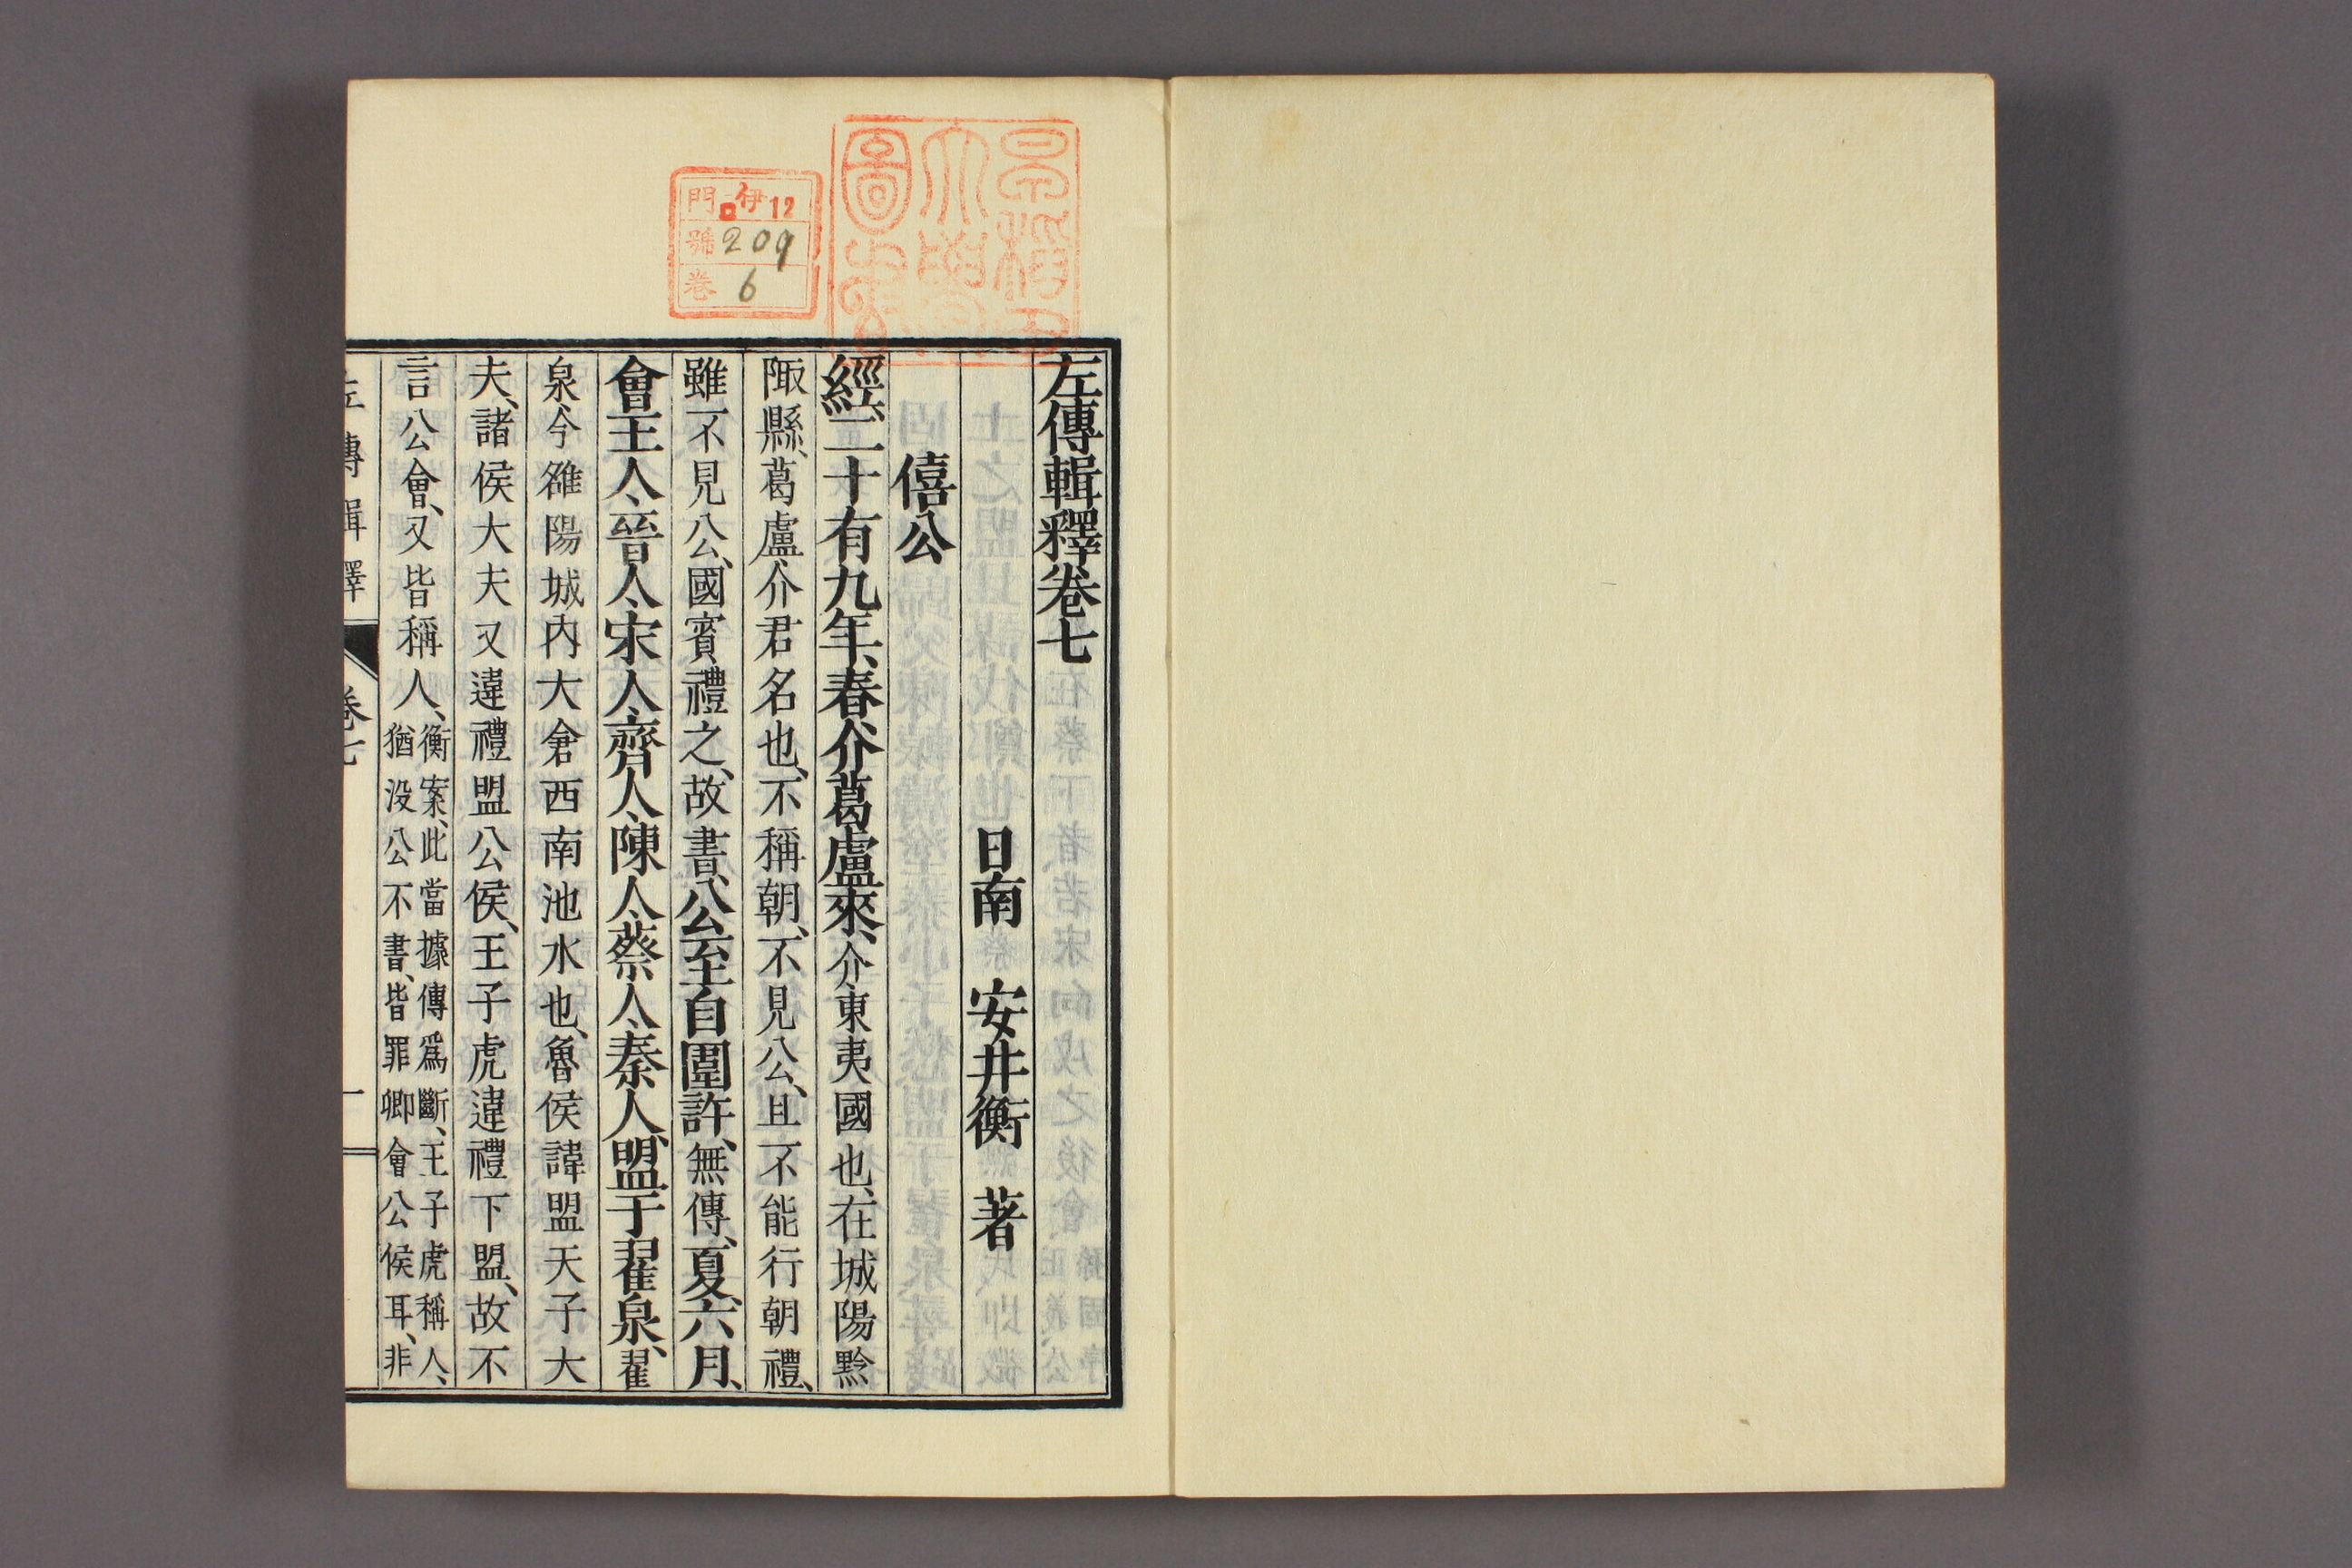 左傳輯釋卷七
日南 安井衡 著
僖公
經、二十有九年、春、介葛盧來、介、東夷國也、在城陽黔
陬縣、葛盧、介君名也、不稱朝、不見公、且不能行朝禮、
雖不見公、國賓禮之、故書、公至自圍許、無傳、夏、六月、
會王人、晉人、宋人、齊人、陳人、蔡人、秦人、盟于翟泉、翟
泉、今雒陽城內大倉西南池水也、魯侯諱盟天子大
夫、諸侯大夫又違禮盟公侯、王子虎違禮下盟、故不
言公會、又皆稱人、衡案、此當據傳爲斷、王子虎稱人、
猶沒公不書、皆罪卿會公侯耳、非
左傳輯釋 卷七 一
門 伊12
號 209
卷 6
早稻田大學圖書